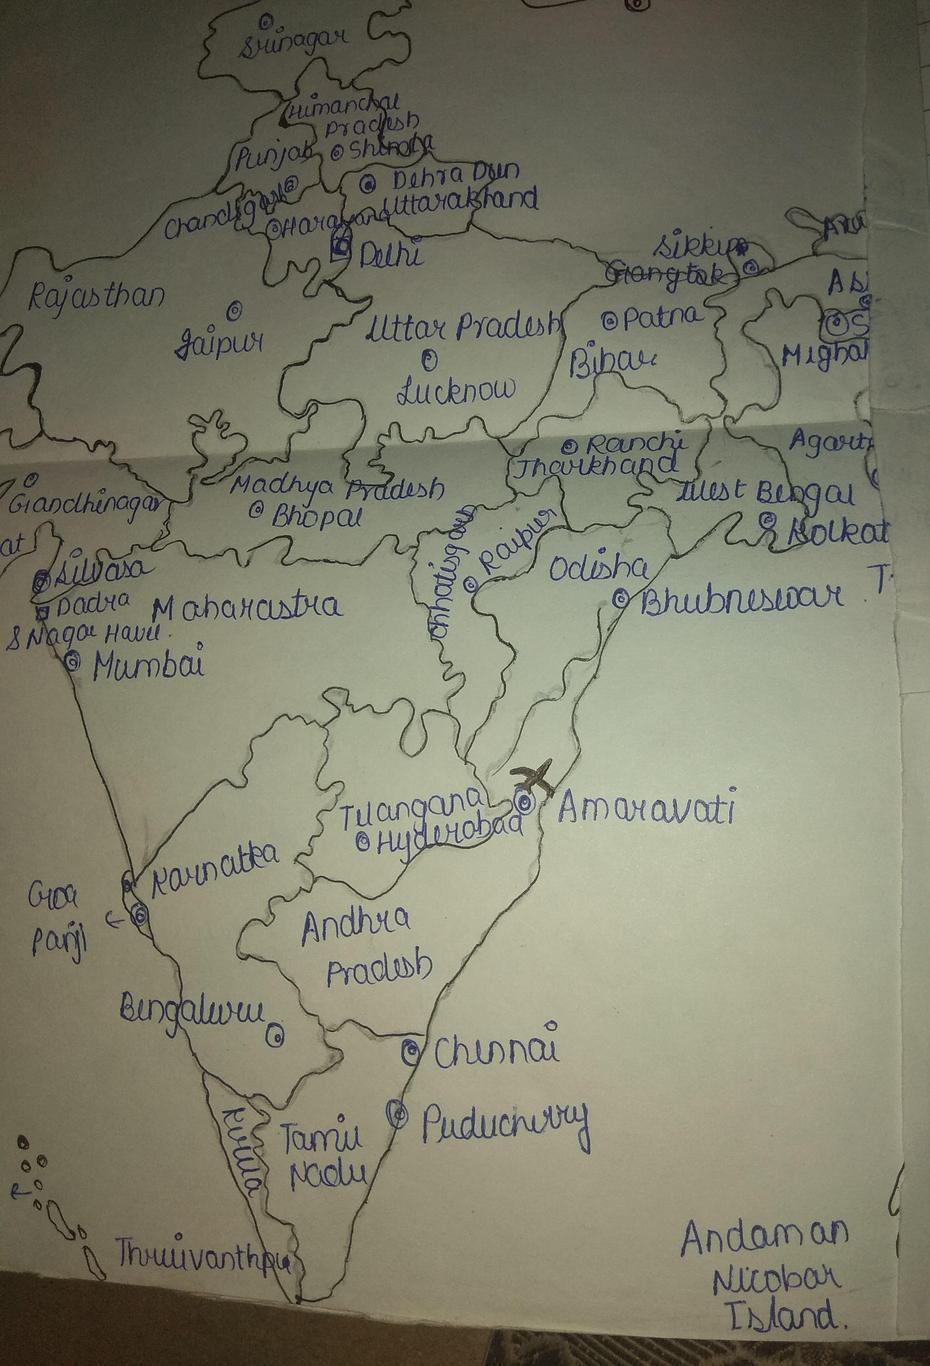 Srinagar
Himanchal
Pradesh
Shimla
Punjab
Dehra Dun
Chandigarh
Uttarakhand
Harayana
Delhi
Sikkim
Gangtok
Rajasthan
Jaipur
Uttar Pradesh
Lucknow
Patna
Bihar
S
Mighal
Ranchi
Jharkhand
Agart
Giandhinagar
Madhya Pradesh
Bhopal
West Bengal
Kolkat
at
Silvasa
Dadra
& Nagar Haveli.
Maharastra
Mumbai
Chhatisgarh
Raipur
Odisha
Bhubneswar
T
Telangana
Hyderabad
Amaravati
Karnatka
Goa
Panji
Andhra
Pradesh
Bengaluru
Chennai
Puducherry
Kerela
Tamil
Nadu
Andaman
Nicobar
Island.